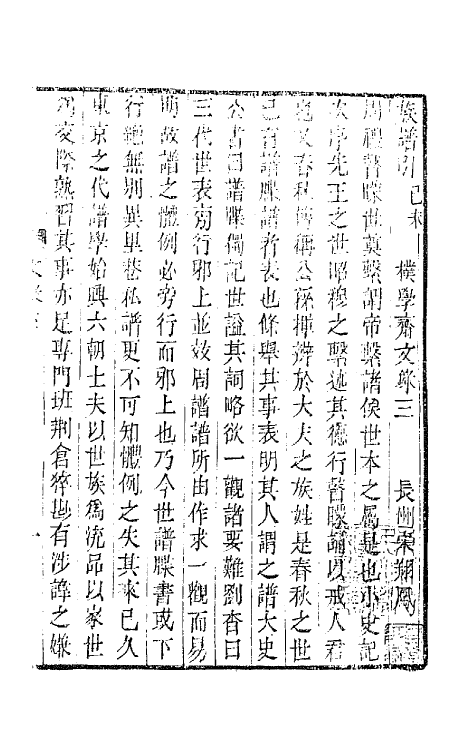 樸學齋文錄三　長洲宋翔鳳
族譜引己未
周禮瞽矇世奠繫謂帝繫諸侯世本之屬是也小史記
次序先王之世昭穆之繫述其德行瞽矇誦以戒人君
也又春秋傳稱公孫揮辨於大夫之族姓是春秋之世
已有譜牒譜者表也條舉其事表明其人謂之譜大史
公書曰譜牒獨記世謚其詞略欲一觀諸要難劉杳曰
三代世表旁行邪上並效周譜譜所由作求一觀而易
明故譜之體例必旁行而邪上也乃今世譜牒書或下
行絶無別異里巷私譜更不可知體例之失其來已久
東京之代譜學始興六朝士夫以世族爲流品以家世
爲交際熟習其事亦是專門班荆倉猝尠有涉諱之嫌
一